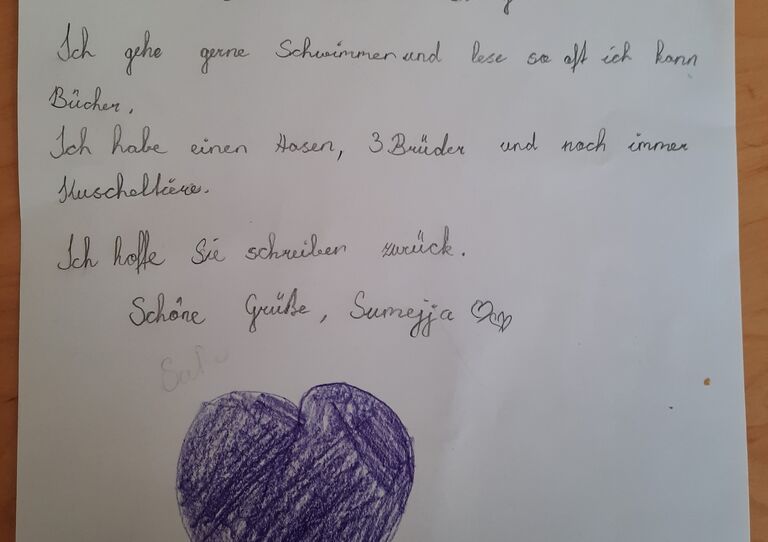 Ich gehe gerne Schwimmen und lese so oft ich kann
Bücher.
Ich habe einen Hasen, 3 Brüder und noch immer
Kuscheltiere.
Ich hoffe Sie schreiben zurück.
Schöne Grüße, Sumejja